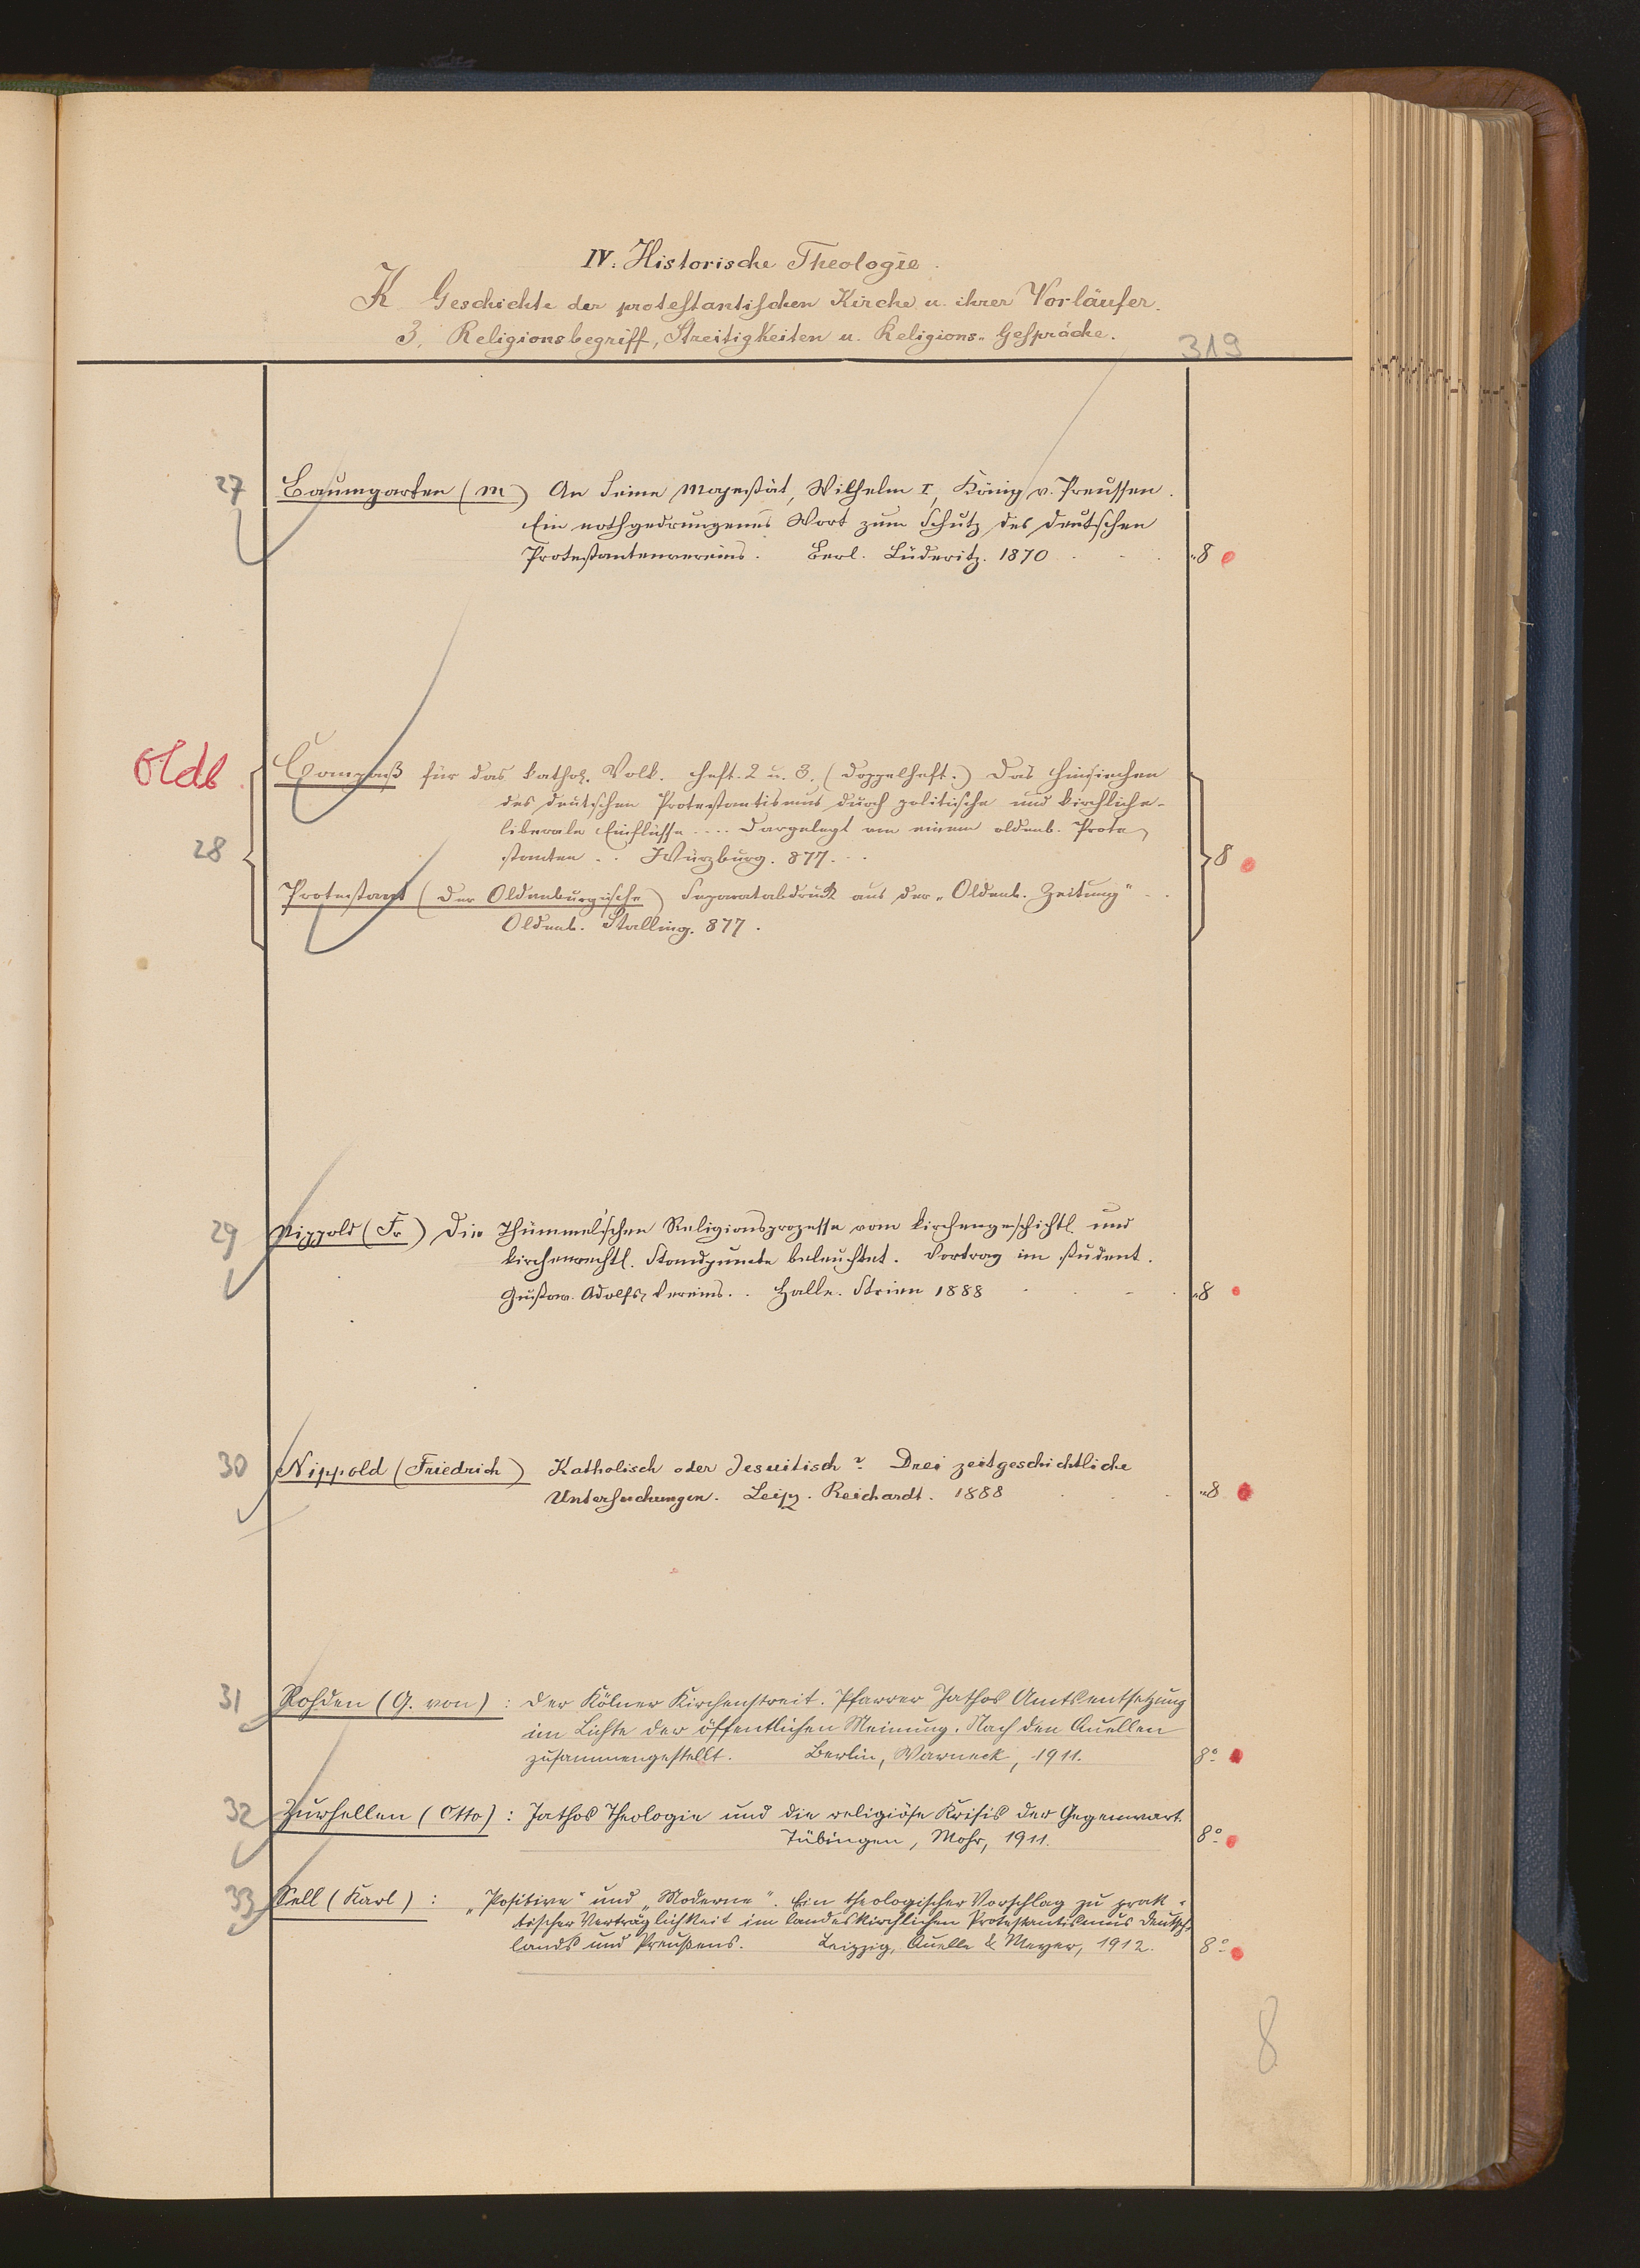 IV. Historische Theologie.
K Geschichte der protestantischen Kirche u. ihrer Vorläufer.
3. Religionsbegriff, Streitigkeiten u. Religions-Gespräche.
319
27 Baumgarten (M) An Seine Majestät, Wilhelm I, König v. Preussen.
Ein nothgedrungenes Wort zum Schutz des deutschen
Protestantenvereins. Berl. Lüderitz. 1870 . . . "8
Oldb.
28
Compaß für das kathol. Volk. Heft. 2 u. 3. (Doppelheft.) Das Hinsiechen
des deutschen Protestantismus durch politische und kirchliche-
liberale Einflüsse .... Dargelegt von einem oldenb. Prote-
stanten .. Würzburg. 877. .. 8
Protestant (Der Oldenburgische) Separatabdruck aus der "Oldenb. Zeitung" ..
Oldenb. Stalling. 877.
29 Nippold (Fr.) Die Thümmel'schen Religionsprozesse vom kirchengeschichtl. und
kirchenrechtl. Standpuncte beleuchtet. Vortrag im student.
Gustav-Adolfs-Vereins. . Halle. Strien 1888 . . . "8
30 Nippold (Friedrich) Katholisch oder Jesuitisch? Drei zeitgeschichtliche
Untersuchungen. Leipz. Reichardt. 1888 . . . "8
31 Rohden (G. von): Der Kölner Kirchenstreit. Pfarrer Jathos Amtsentsetzung
im Lichte der öffentlichen Meinung. Nach den Quellen
zusammengestellt. Berlin, Warneck, 1911. 8°
32 Zurhellen (Otto): Jathos Theologie und die religiöse Krisis der Gegenwart.
Tübingen, Mohr, 1911. 8°
33 Sell (Karl): „Positive" und „Moderne". Ein theologischer Vorschlag zu prak-
tischer Verträglichkeit im landeskirchlichen Protestantismus Deutsch-
lands und Preußens. Leipzig, Quelle & Meyer, 1912. 8°
8